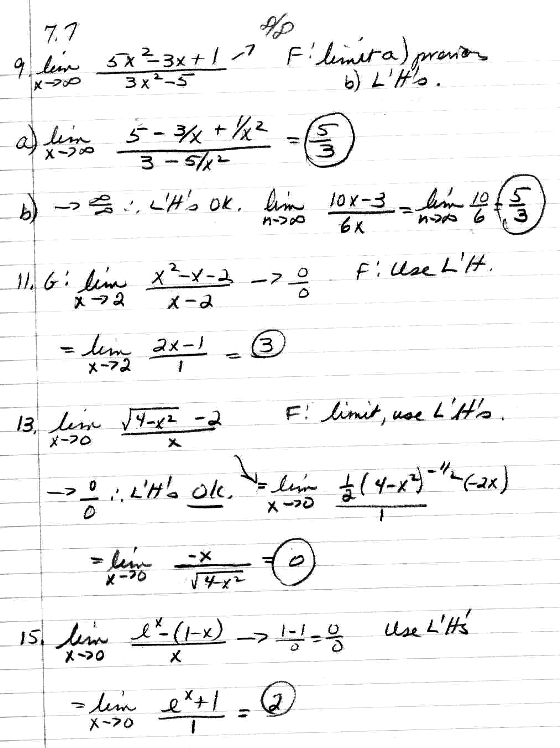 7.7
9. lim x→∞ (5x² - 3x + 1)/(3x² - 5) → F: limit a) previous
b) L'H's.
a) lim x→∞ (5 - 3/x + 1/x²)/(3 - 5/x²) = 5/3
b) → ∞/∞ ∴ L'H's OK. lim n→∞ (10x-3)/(6x) = lim n→∞ 10/6 = 5/3
11. G: lim x→2 (x²-x-2)/(x-2) → 0/0 F: Use L'H.
= lim x→2 (2x-1)/1 = 3
13. lim x→0 (√(4-x²) - 2)/x F: limit, use L'H's.
→ 0/0 ∴ L'H's OK. = lim x→0 (½(4-x²)^(-1/2)(-2x))/1
= lim x→0 (-x)/√(4-x²) = 0
15. lim x→0 (e^x-(1-x))/x → (1-1)/0 = 0/0 Use L'H's
= lim x→0 (e^x+1)/1 = 2